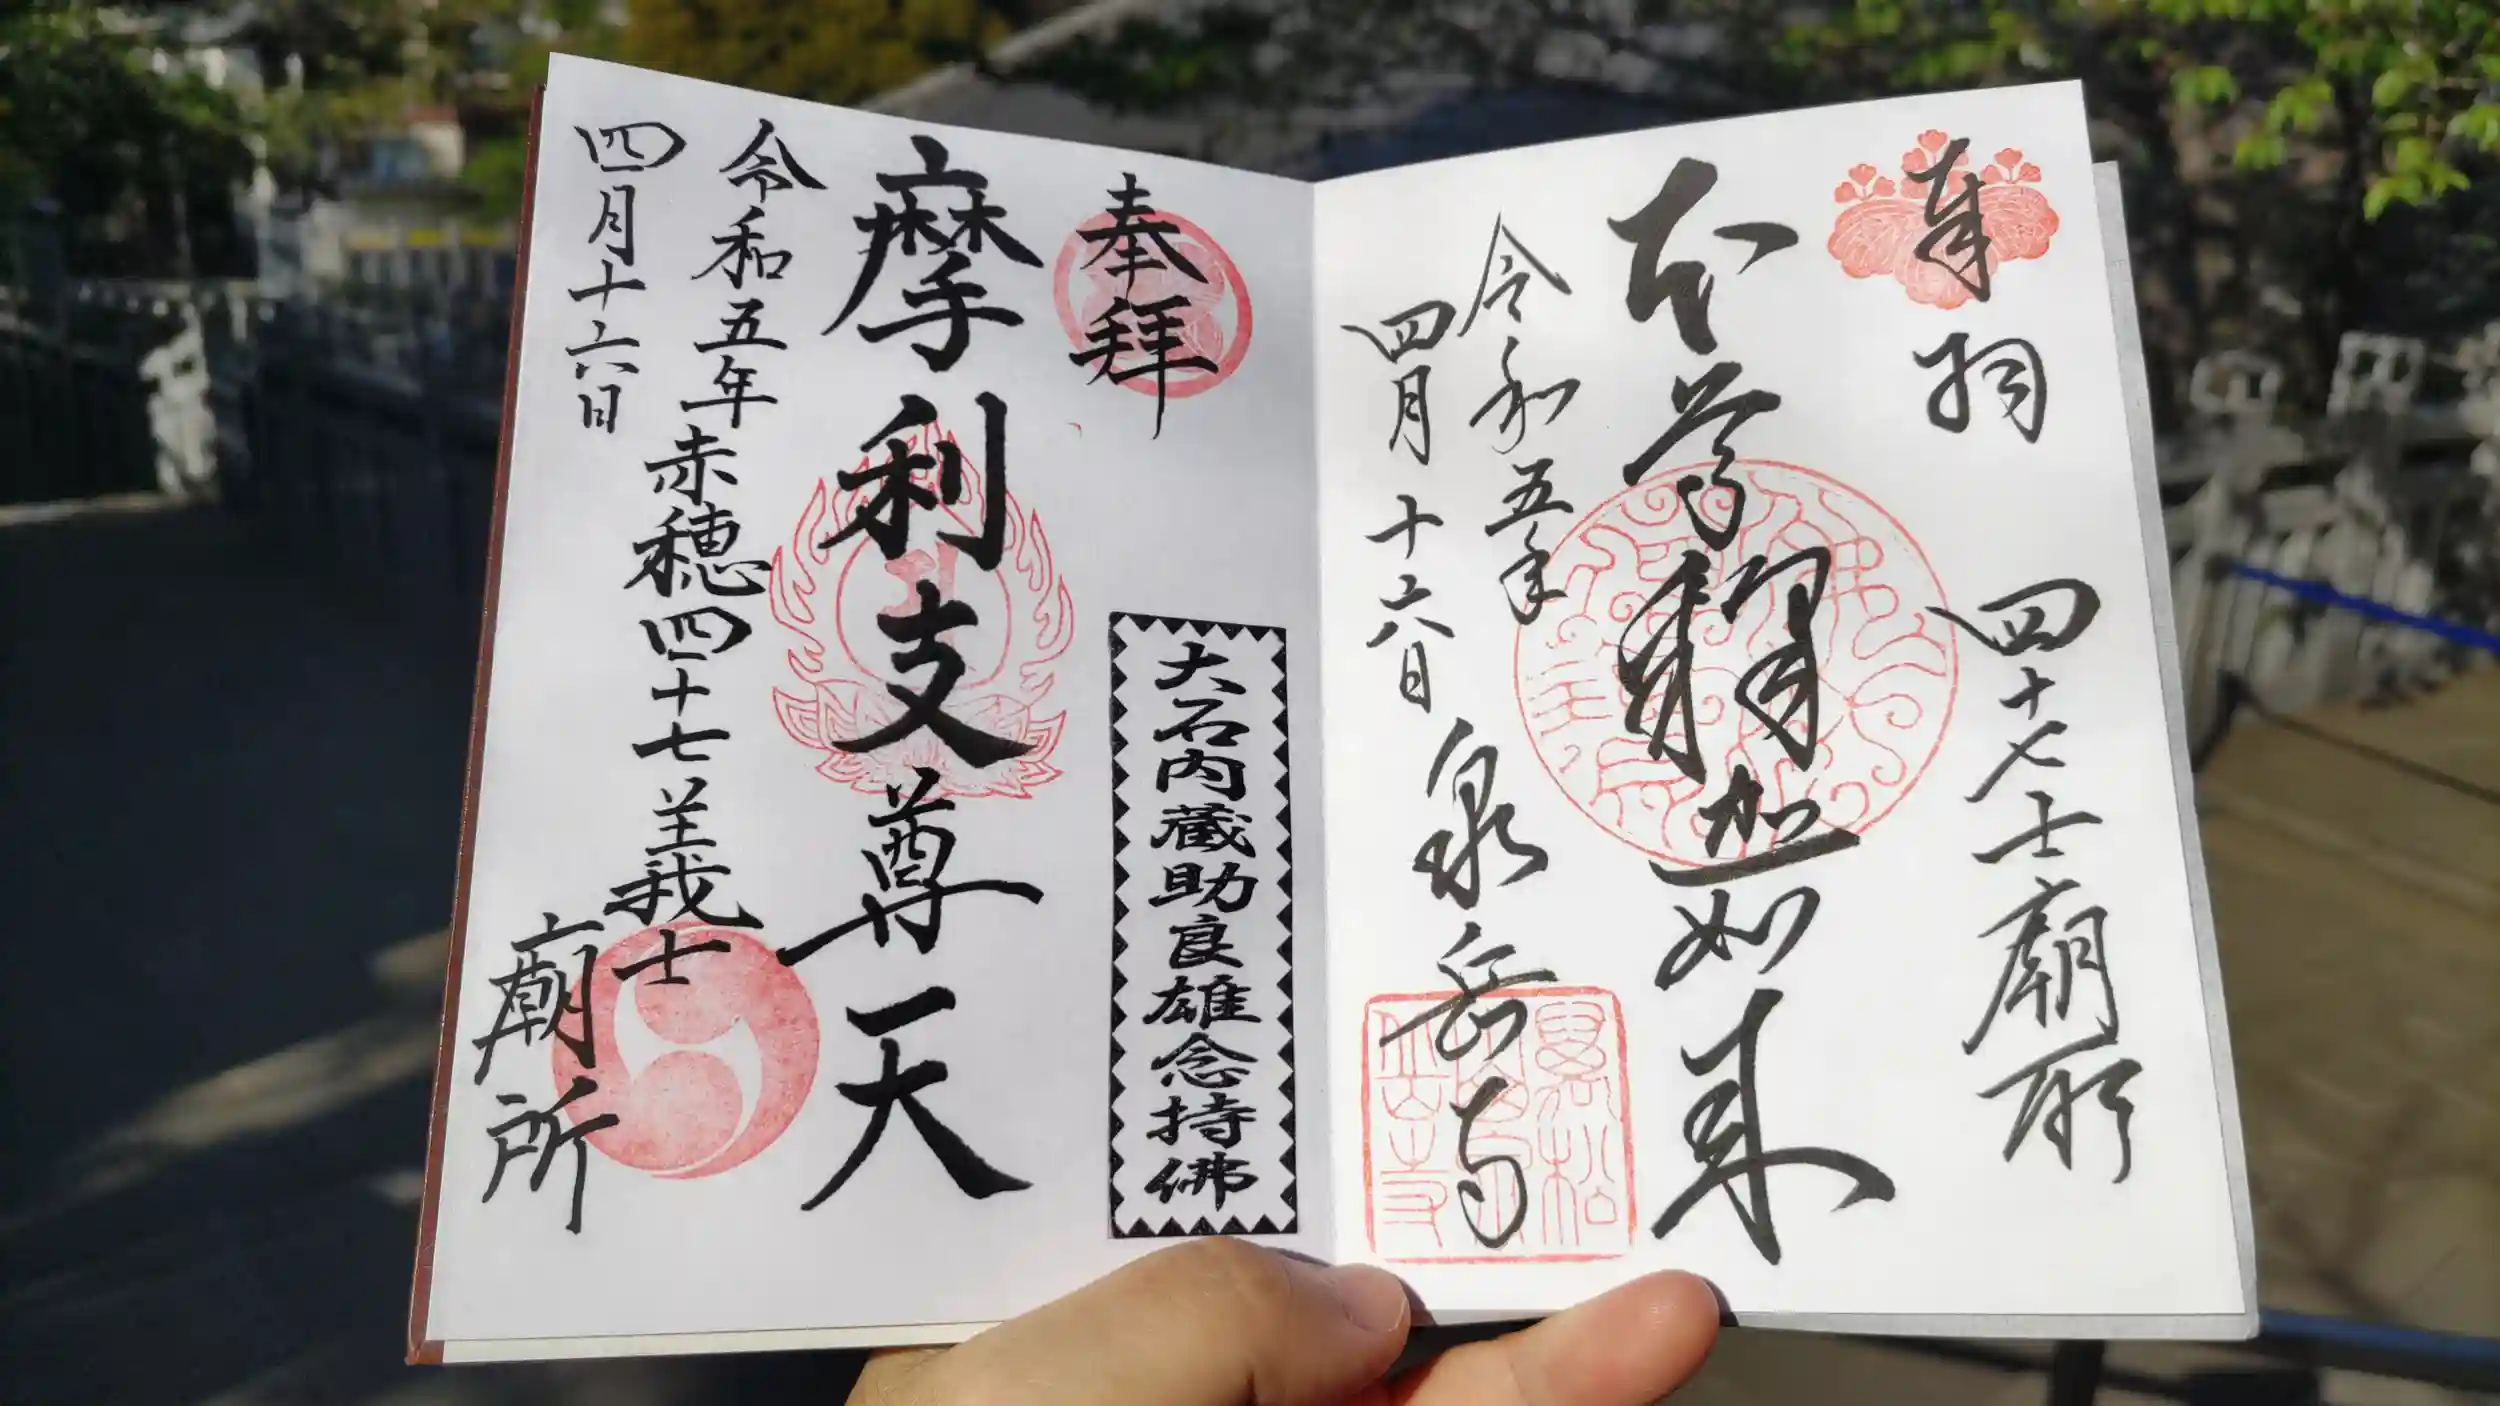 奉詞
四十七士廟所
本尊釋迦如来
令和五年
四月十六日
泉岳寺
奉拝
大石内蔵助良雄念持佛
摩利支尊天
令和五年
四月十六日
赤穂四十七義士
廟所